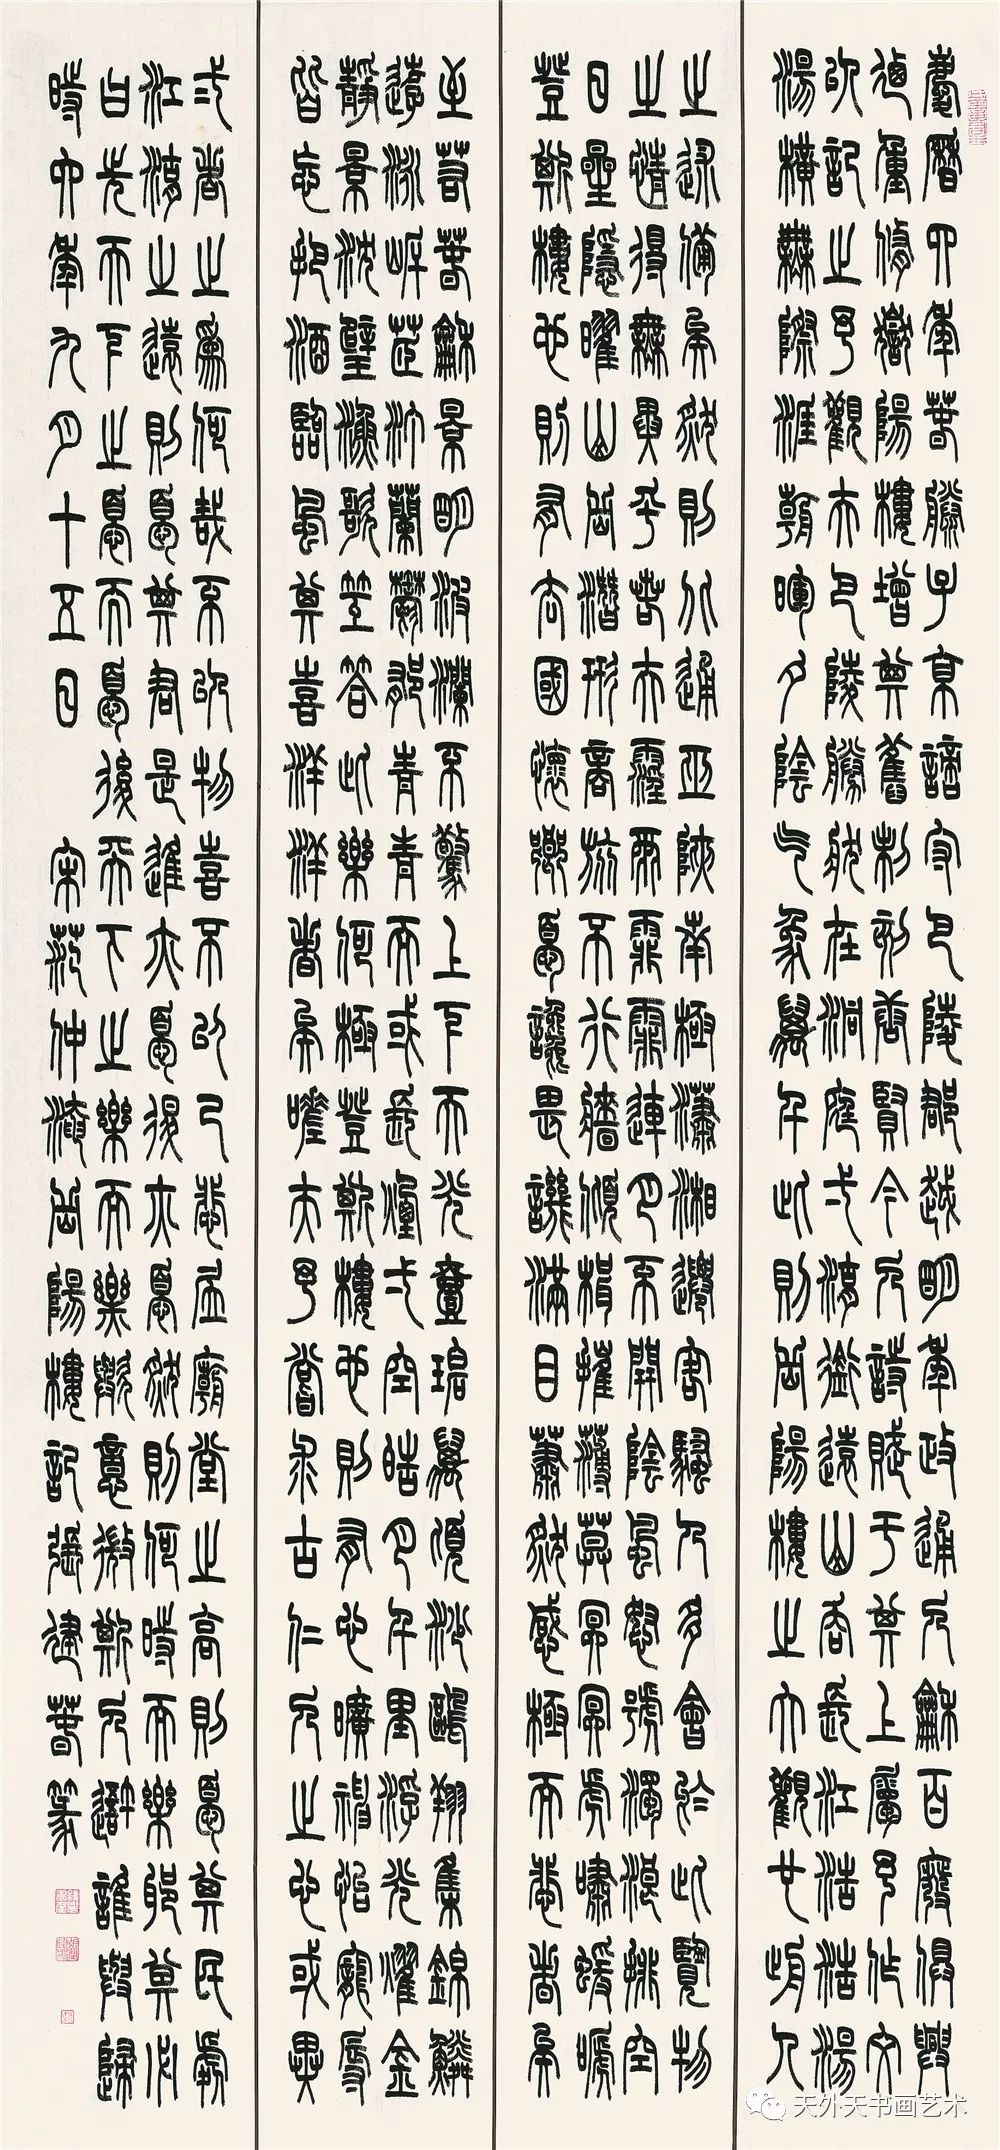 慶曆四年春滕子京謫守巴陵郡越明年政通人和百廢俱興
乃重修嶽陽樓增其舊制刻唐賢今人詩賦于其上屬予作文
以記之予觀夫巴陵勝狀在洞庭一湖銜遠山吞長江浩浩湯
湯橫無際涯朝暉夕陰氣象萬千此則岳陽樓之大觀也前人
之述備矣然則北通巫峽南極瀟湘遷客騷人多會於此覽物
之情得無異乎若夫霪雨霏霏連月不開陰風怒號濁浪排空
日星隱曜山岳潛形商旅不行檣傾楫摧薄暮冥冥虎嘯猿啼
登斯樓也則有去國懷鄉憂讒畏譏滿目蕭然感極而悲者矣
至若春和景明波瀾不驚上下天光壹碧萬頃沙鷗翔集錦鱗
游泳岸芷汀蘭鬱鬱青青而或長煙一空皓月千里浮光耀金
靜景沈璧漁歌互答此樂何極登斯樓也則有心曠神怡寵辱
皆忘把酒臨風其喜洋洋者矣嗟夫予嘗求古仁人之心或異
二者之為何哉不以物喜不以己悲居廟堂之高則憂其民處
江湖之遠則憂其君是進亦憂退亦憂然則何時而樂耶其必
曰先天下之憂而憂後天下之樂而樂歟意微斯人吾誰與歸
時六年九月十五日 宋范仲淹岳陽樓記張建春篆
天外天书画艺术